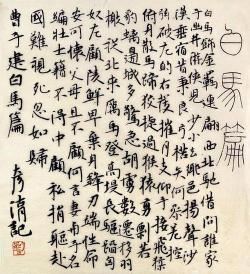 白馬篇
白馬飾金羈連翩西北馳借問誰家
子幽并游俠兒少小去鄉邑揚聲沙
漠垂宿昔秉良弓楛矢何參差控
弦破左的右發摧月支仰手接飛猱
俯身散馬蹄狡捷過猴猿勇剽若
豹螭邊城多警急胡虜數遷移羽
檄從北來厲馬登高堤長驅蹈匈
奴左顧陵鮮卑棄身鋒刃端性命
安可懷父母且不顧何言子與妻名
編壯士籍不得中顧私捐軀赴
國難視死忽如歸
曹子建白馬篇
記